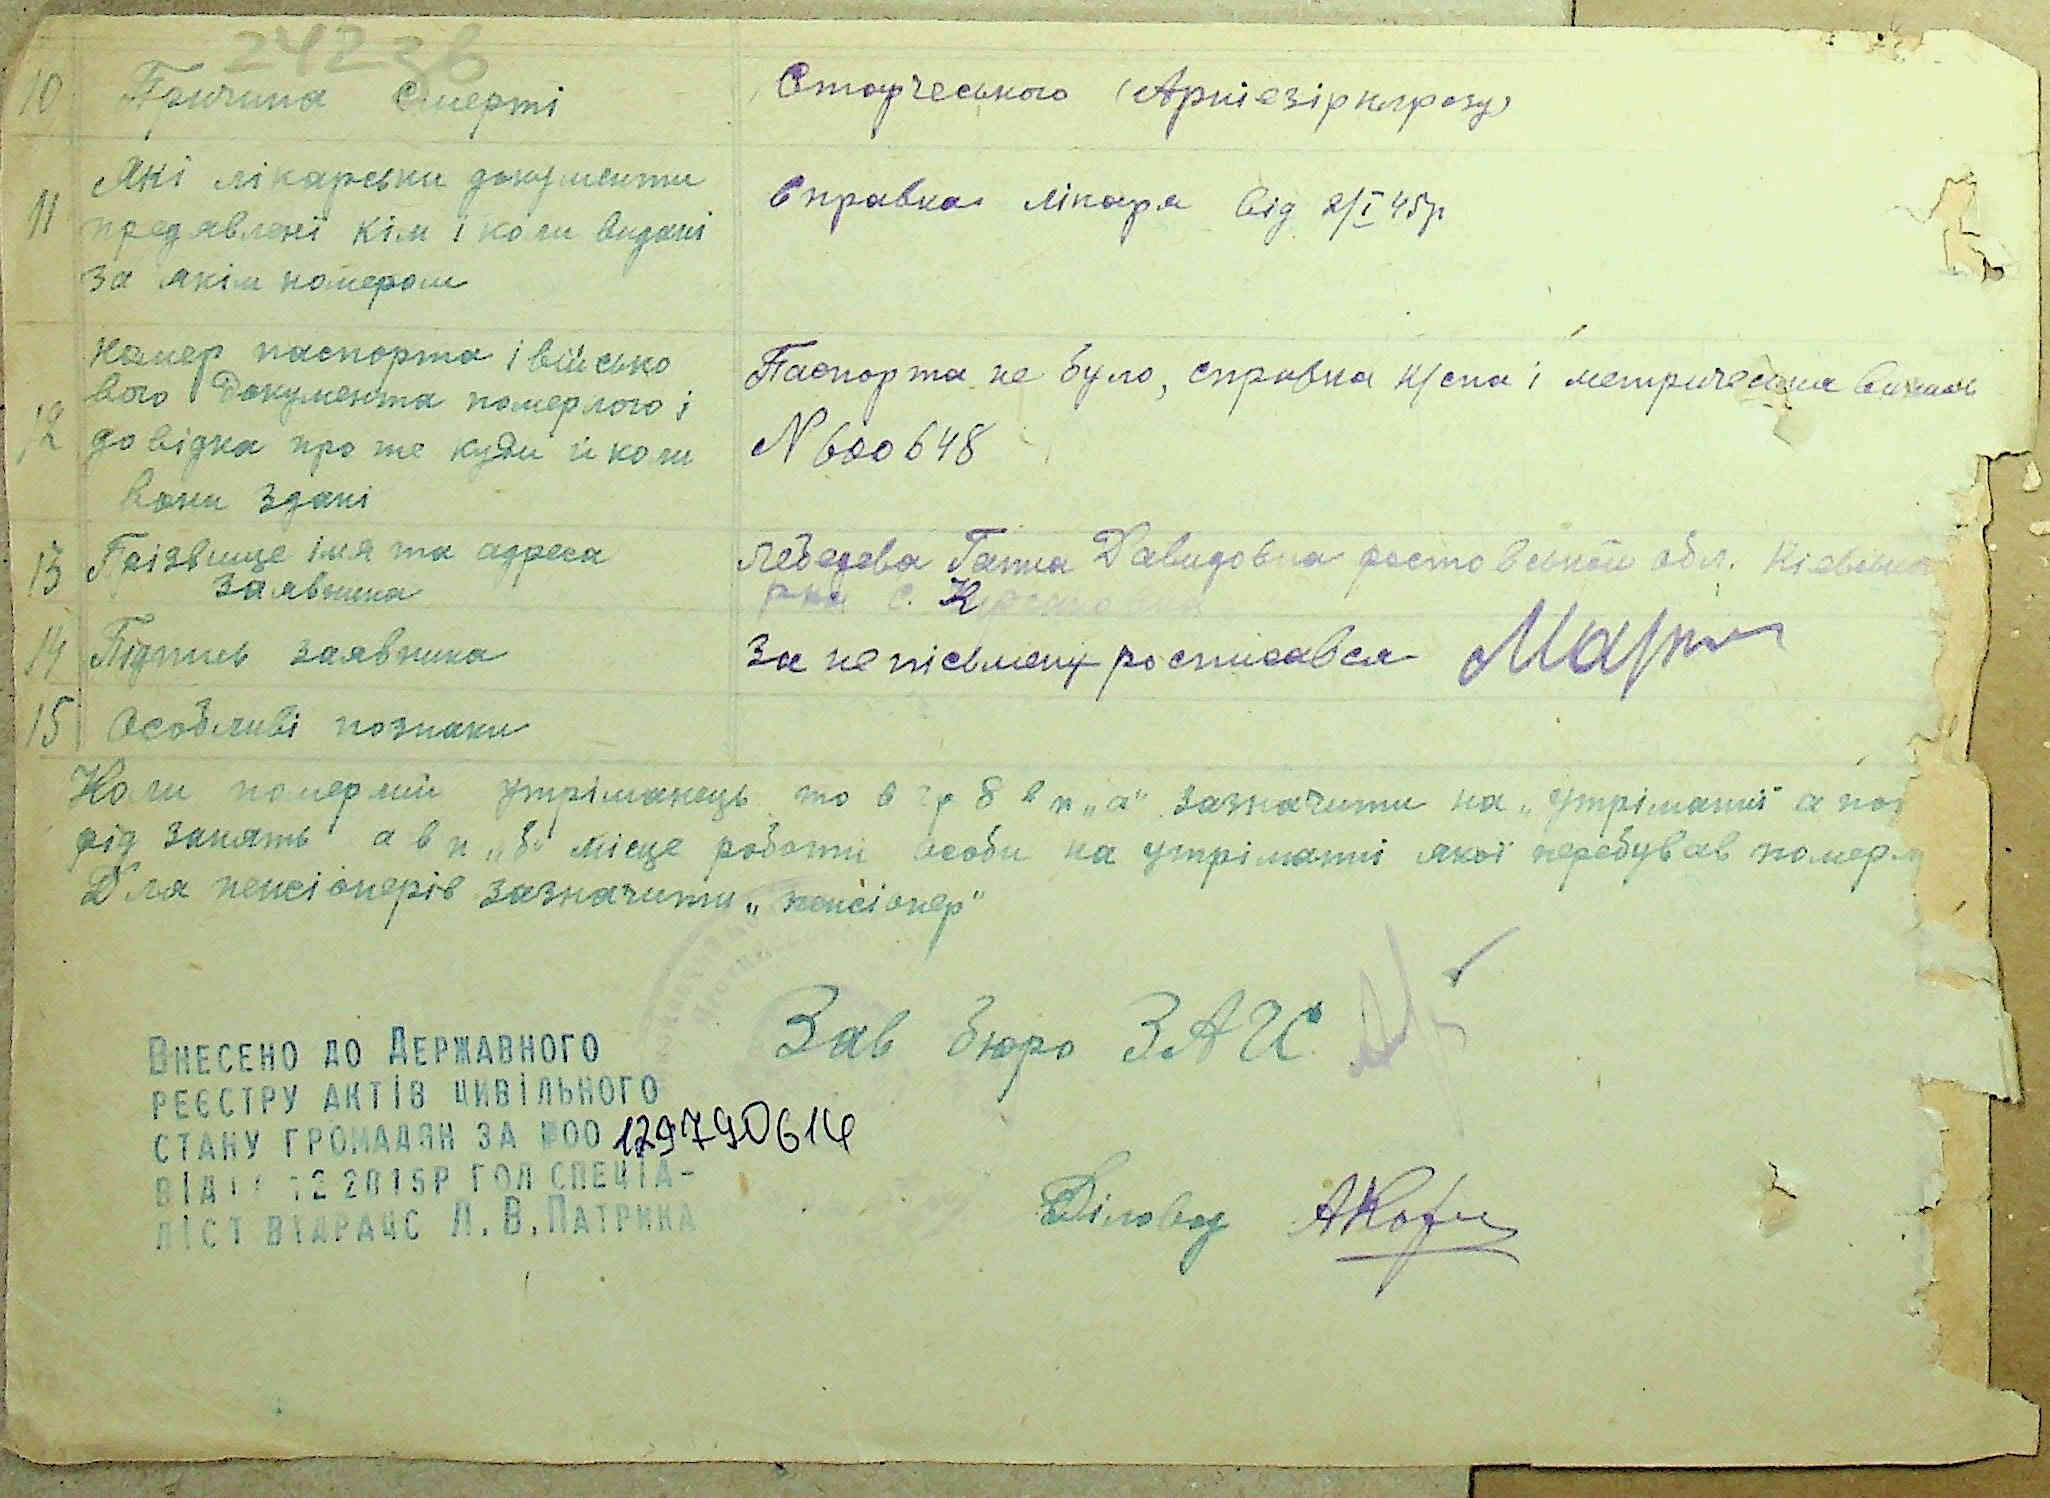 24236
10 Причина смерті
11 Які лікарськи документи
предявлені кім і коли видані
за якім номером
Справка лікаря від 2/I 45р
12 Номер паспорта і військо
вого документа померлого і
довідка про те куди й коли
вони здані
Паспорта не було, справка с/спа і метрическая
N 600648
13 Прізвище імя та адреса
заявника
Лебедева Ганна Давидовна ростовській обл.
р-на с.
14 Підпись заявника
За неписьмену росписався
15 Особливі познаки
Коли померлий утріманець то в гр 8 в п „а“ зазначити на „утріманні а
рід занять а в п „б“ місце роботи особи на утріманні якої перебував
Для пенсіонерів зазначити „пенсіонер“
Зав бюро ЗАГС
Внесено до Державного
реєстру актів цивільного
стану громадян за №00 129790614
від 12 2015р гол спеціа-
ліст відрацс Л.В.Патрина
Діловод